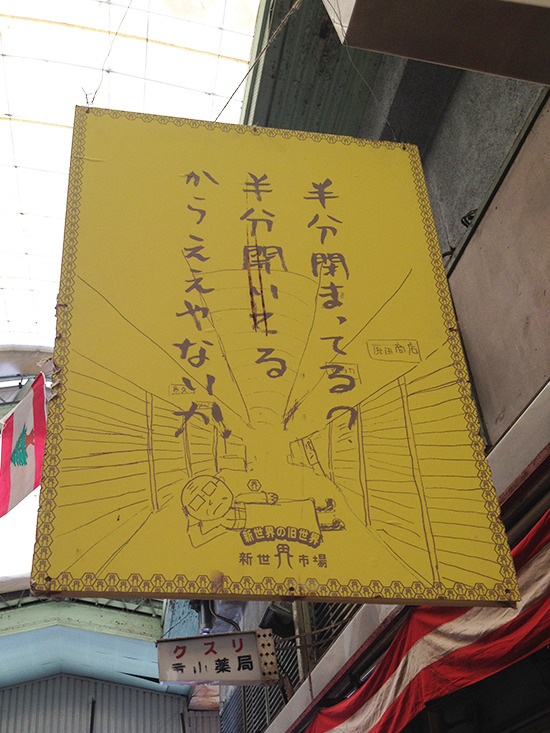 半分閉まってるの、
半分開いとる
からええやないか。
商店
新世界の旧世界
新世界市場
クスリ
小薬局